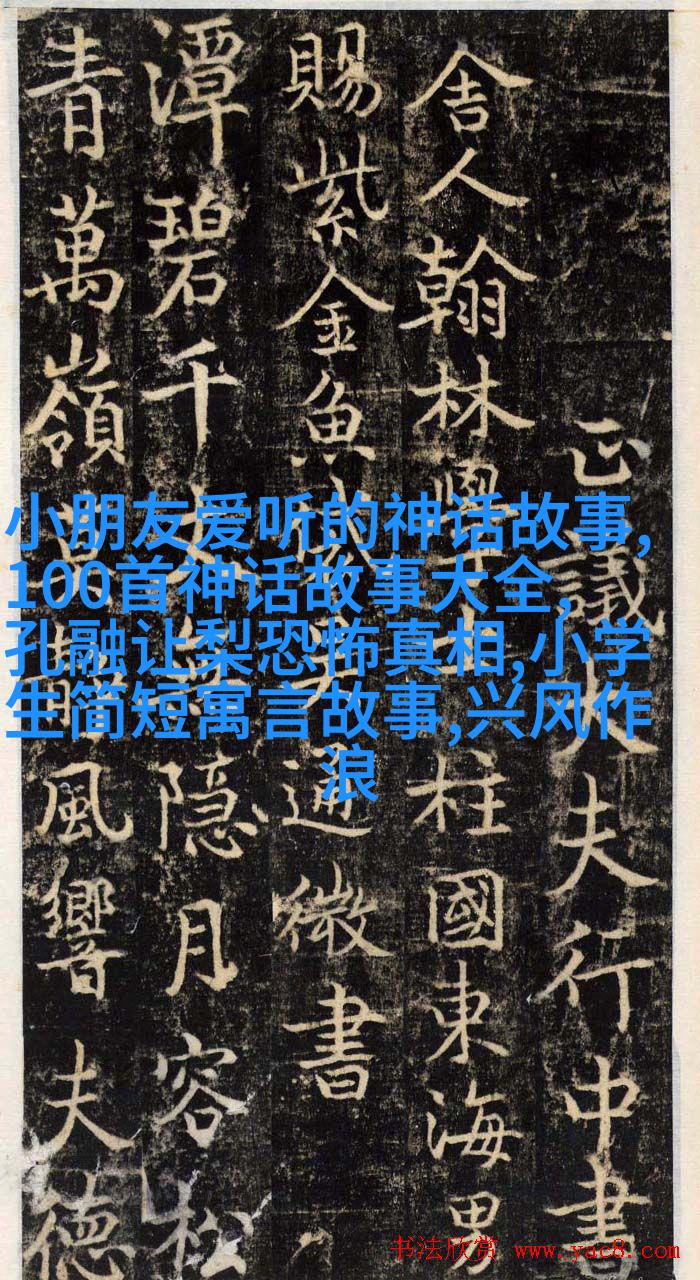 正議大夫行中書
舍人翰林學柱國東海男
賜紫金魚通微書
潭碧千隐月容松
青萬嶺風響夫德
小朋友爱听的神话故事,
100首神话故事大全,
孔融让梨恐怖真相,小学
生简短寓言故事,兴风作
浪
书法欣赏 www.yac8.com